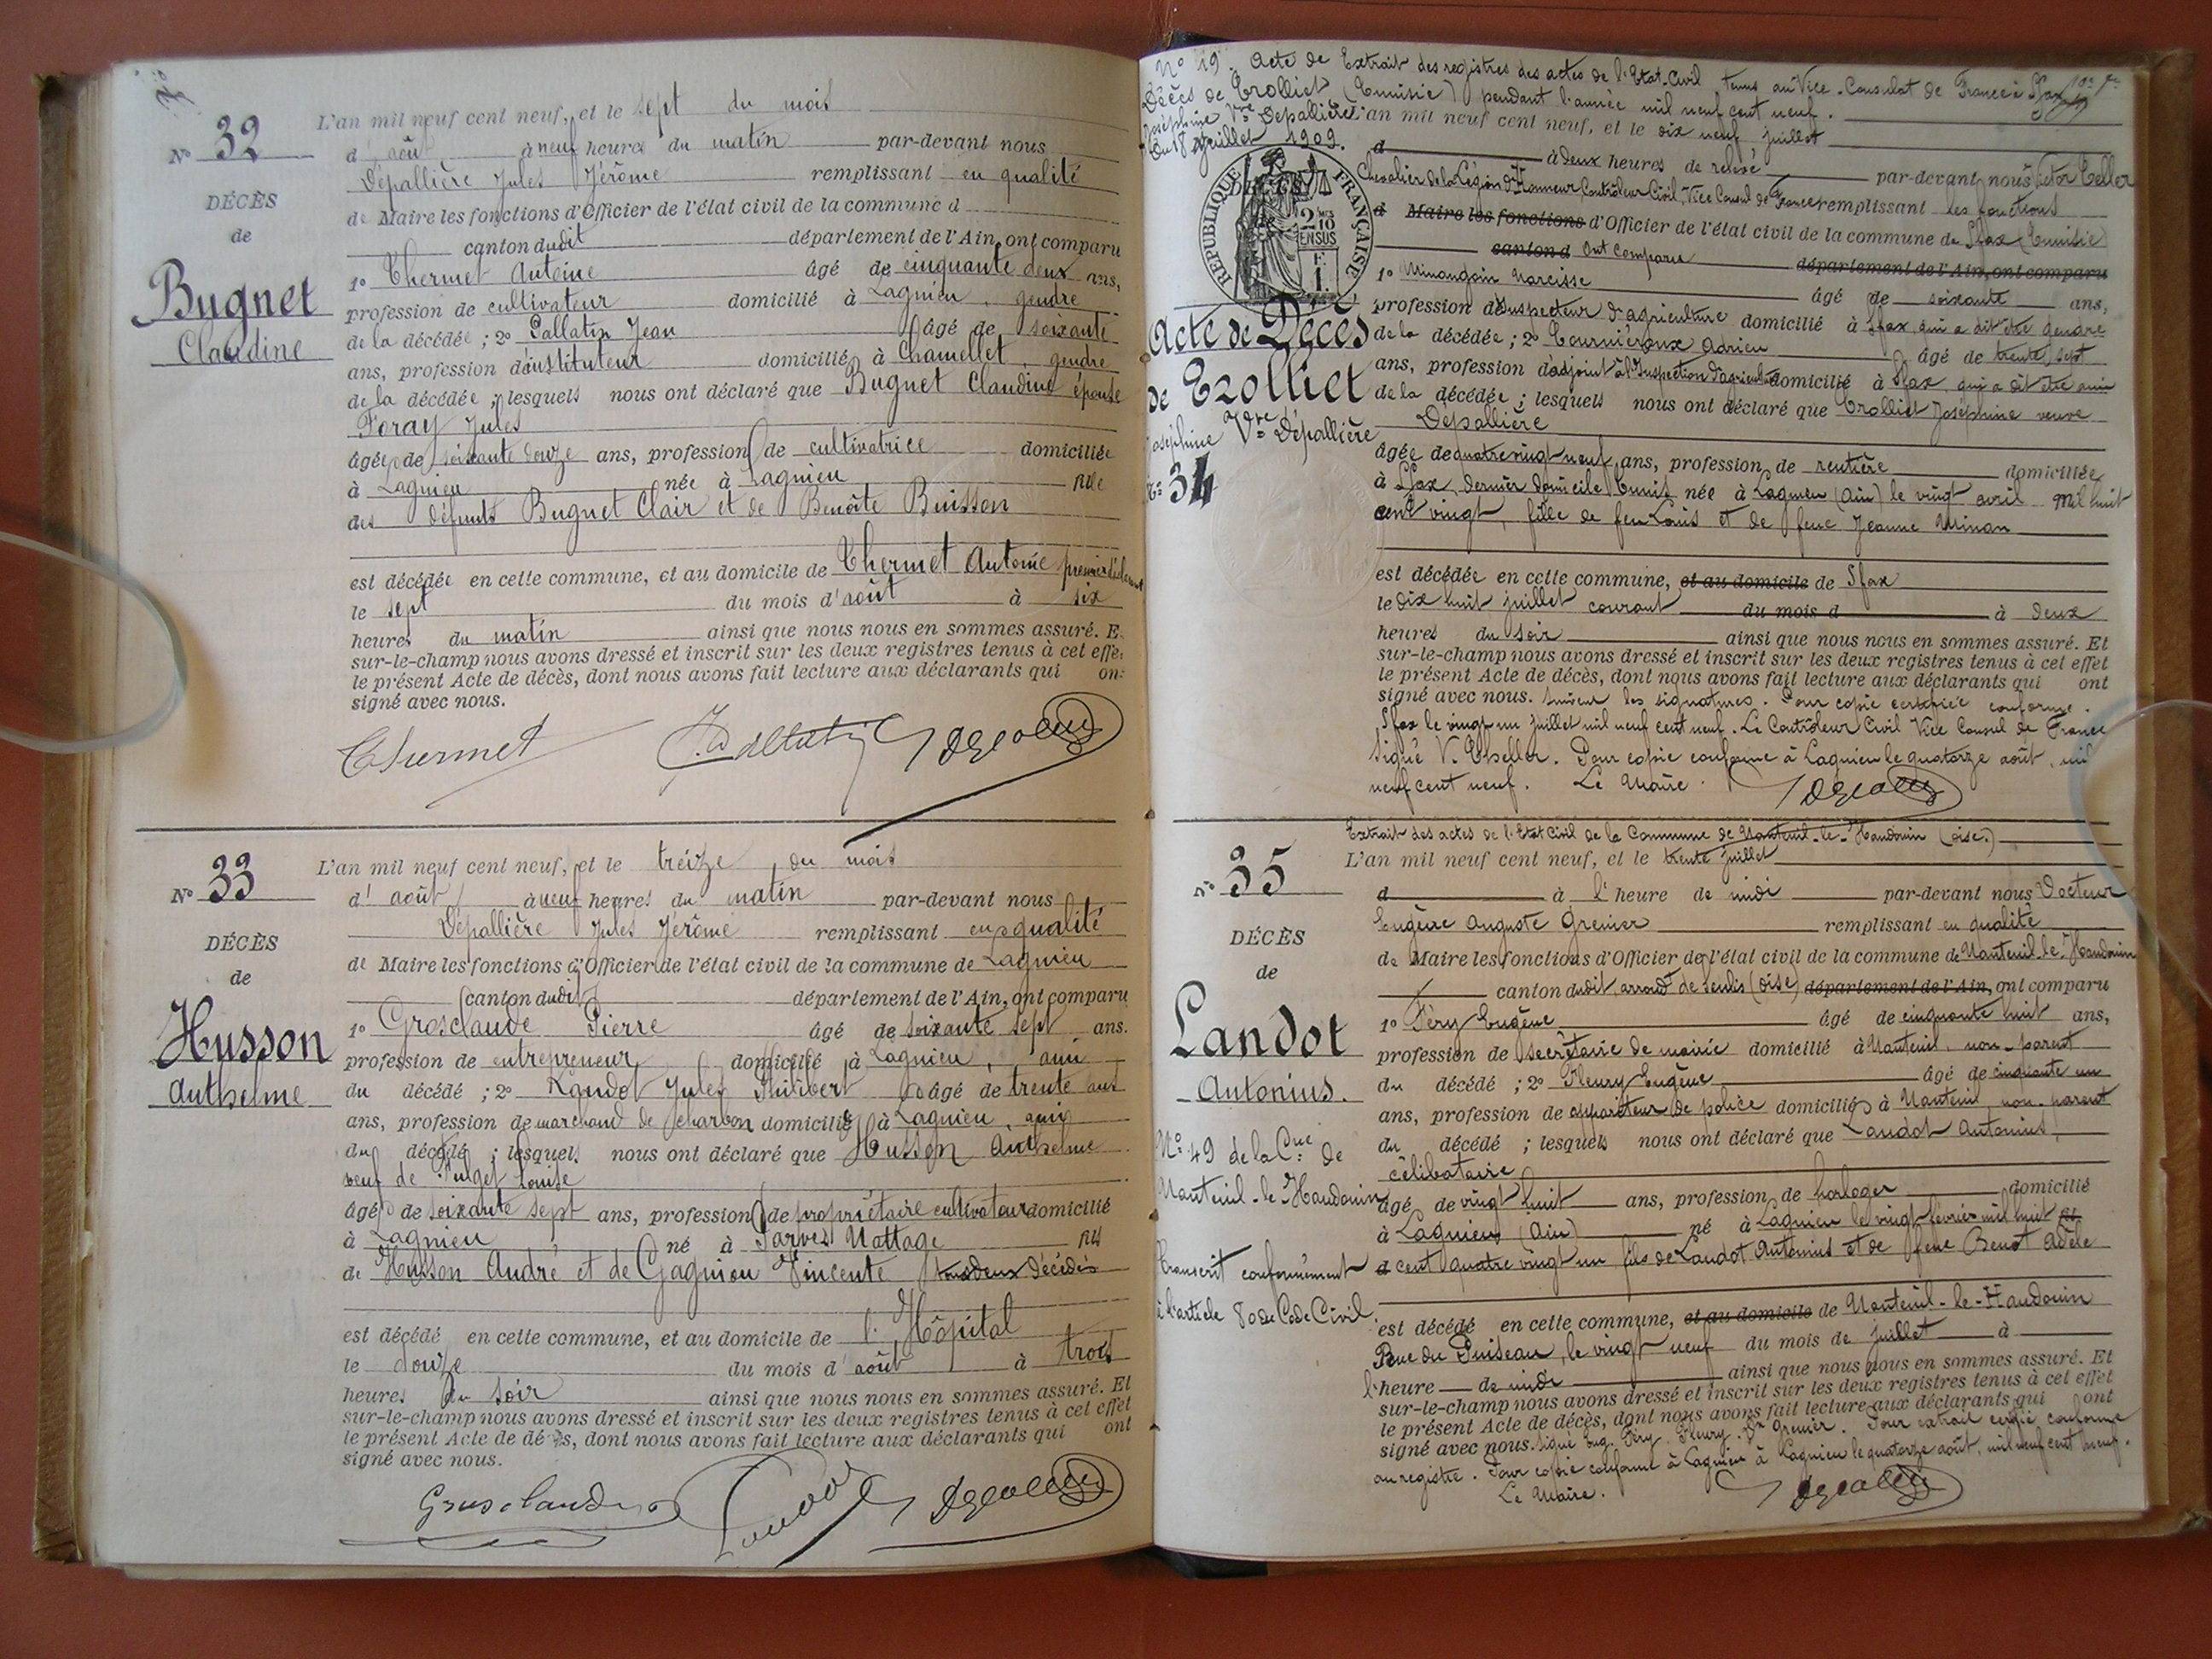 N° 32
DÉCÈS
de
Bugnet
Claudine
L'an mil neuf cent neuf, et le sept du mois
d'août à neuf heures du matin par-devant nous
Dépallière Jules Jérôme remplissant en qualité
de Maire les fonctions d'Officier de l'état civil de la commune d
canton dudit département de l'Ain, ont comparu
1° Thermet Antoine âgé de cinquante deux ans,
profession de cultivateur domicilié à Lagnieu, gendre
de la décédée ; 2° Pallatin Jean âgé de soixante
ans, profession d'instituteur domicilié à Chamellet, gendre
de la décédée ; lesquels nous ont déclaré que Bugnet Claudine épouse
Foray Jules
âgée de soixante douze ans, profession de cultivatrice domiciliée
à Lagnieu née à Lagnieu fille
des défunts Bugnet Clair et de Benoîte Buisson
est décédée en cette commune, et au domicile de Thermet Antoine premier déclarant
le sept du mois d'août à six
heures du matin ainsi que nous nous en sommes assuré. E
sur-le-champ nous avons dressé et inscrit sur les deux registres tenus à cet effe
le présent Acte de décès, dont nous avons fait lecture aux déclarants qui on
signé avec nous.
Thermet
N° 33
DÉCÈS
de
Husson
Anthelme
L'an mil neuf cent neuf, et le treize du mois
d'août à neuf heures du matin par-devant nous
Dépallière Jules Jérôme remplissant en qualité
de Maire les fonctions d'Officier de l'état civil de la commune de Lagnieu
canton dudit département de l'Ain, ont comparu
1° Grosclaude Pierre âgé de soixante sept ans.
profession de entrepreneur domicilié à Lagnieu, ami
du décédé ; 2° Landot Jules Philibert âgé de trente ans
ans, profession de marchand de charbon domicilié à Lagnieu, ami
du décédé ; lesquels nous ont déclaré que Husson Anthelme
veuf de Puget Louise
âgé de soixante sept ans, profession de propriétaire cultivateur domicilié
à Lagnieu né à Parves Nattage fils
de Husson André et de Gagniou Vincente tous deux décédés
est décédé en cette commune, et au domicile de l'Hôpital
le douze du mois d'août à trois
heures du soir ainsi que nous nous en sommes assuré. Et
sur-le-champ nous avons dressé et inscrit sur les deux registres tenus à cet effet
le présent Acte de décès, dont nous avons fait lecture aux déclarants qui ont
signé avec nous.
Grosclaude
Landot
N° 19. Acte de
Décès de Trolliet
Joséphine Vve Depallière
Du 18 juillet 1909.
RÉPUBLIQUE FRANÇAISE
Acte de Décès
de Trolliet
Joséphine Vve Dépallière
N° 34
Extrait des registres des actes de l'Etat-Civil tenus au Vice-Consulat de France à Sfax
(Tunisie) pendant l'année mil neuf cent neuf.
L'an mil neuf cent neuf, et le dix neuf juillet
d à deux heures de relevé par-devant nous Victor Celler
Chevalier de la Légion d'Honneur, Contrôleur Civil, Vice Consul de France remplissant les fonctions
d Maire les fonctions d'Officier de l'état civil de la commune de Sfax (Tunisie)
canton d ont comparu département de l'Ain, ont comparu
1° Minangoin Narcisse âgé de soixante ans,
profession d'Inspecteur d'agriculture domicilié à Sfax, qui a dit être gendre
de la décédée ; 2° Tourniéroux Adrien âgé de trente sept
ans, profession d'adjoint à l'Inspection d'agriculture domicilié à Sfax, qui a dit être ami
de la décédée ; lesquels nous ont déclaré que Trolliet Joséphine veuve
Dépallière
âgée de quatre vingt neuf ans, profession de rentière domiciliée
à Sfax, dernier domicile Tunis née à Lagnieu (Ain) le vingt avril mil huit
cent vingt, fille de feu Louis et de feue Jeanne Minan
est décédée en cette commune, et au domicile de Sfax
le dix huit juillet courant du mois d à deux
heures du soir ainsi que nous nous en sommes assuré. Et
sur-le-champ nous avons dressé et inscrit sur les deux registres tenus à cet effet
le présent Acte de décès, dont nous avons fait lecture aux déclarants qui ont
signé avec nous. Suivent les signatures. Pour copie certifiée conforme.
Sfax le vingt un juillet mil neuf cent neuf. Le Contrôleur Civil Vice Consul de France
Signé V. Cheller. Pour copie conforme à Lagnieu le quatorze août, mil
neuf cent neuf. Le Maire.
N° 35
DÉCÈS
de
Landot
Antonius.
N° 49 de la Cne de
Nanteuil-le-Haudouin
Transcrit conformément
à l'article 80 du Code Civil.
Extrait des actes de l'Etat Civil de la Commune de Nanteuil-le-Haudouin (Oise.)
L'an mil neuf cent neuf, et le trente juillet
d à l'heure de midi par-devant nous Docteur
Eugène Auguste Grenier remplissant en qualité
de Maire les fonctions d'Officier de l'état civil de la commune de Nanteuil-le-Haudouin
canton dudit, arrondt de Senlis (Oise) département de l'Ain, ont comparu
1° Féry Eugène âgé de cinquante huit ans,
profession de secrétaire de mairie domicilié à Nanteuil, non-parent
du décédé ; 2° Fleury Eugène âgé de cinquante un
ans, profession de appariteur de police domicilié à Nanteuil, non-parent
du décédé ; lesquels nous ont déclaré que Landot Antonius,
célibataire
âgé de vingt huit ans, profession de horloger domicilié
à Lagnieu (Ain) né à Lagnieu le vingt février mil huit
cent quatre vingt un fils de Landot Antonius et de feue Benot Adèle
est décédé en cette commune, et au domicile de Nanteuil-le-Haudouin
Rue du Puiseau, le vingt neuf du mois de juillet à
l'heure de midi ainsi que nous nous en sommes assuré. Et
sur-le-champ nous avons dressé et inscrit sur les deux registres tenus à cet effet
le présent Acte de décès, dont nous avons fait lecture aux déclarants qui ont
signé avec nous. Signé Eug. Féry. Fleury. Dr Grenier. Pour extrait certifié conforme
au registre. Pour copie conforme à Lagnieu à Lagnieu le quatorze août, mil neuf cent neuf.
Le Maire.